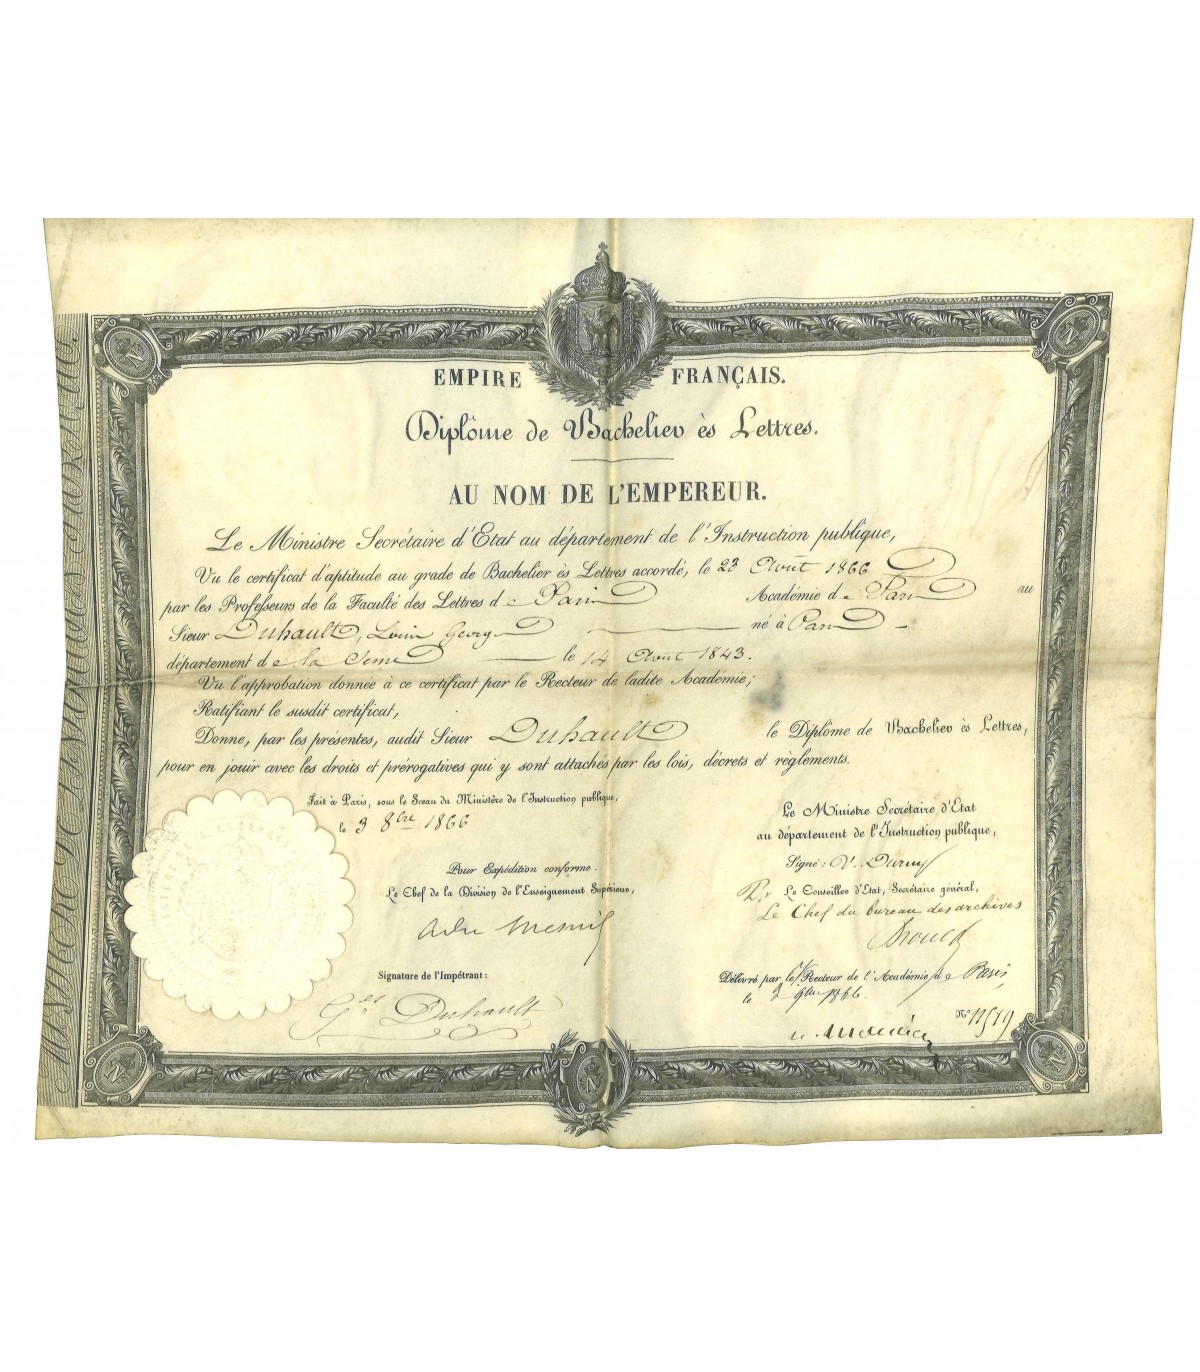 EMPIRE FRANÇAIS.
Diplôme de Bachelier ès Lettres.
AU NOM DE L'EMPEREUR.
Le Ministre Secrétaire d'Etat au département de l'Instruction publique,
Vu le certificat d'aptitude au grade de Bachelier ès Lettres accordé, le 23 Août 1866
par les Professeurs de la Faculté des Lettres de Paris Académie de Paris au
Sieur Duhault, Louis Georges né à Paris
département de la Seine le 14 Août 1843.
Vu l'approbation donnée à ce certificat par le Recteur de ladite Académie;
Ratifiant le susdit certificat,
Donne, par les présentes, audit Sieur Duhault le Diplôme de Bachelier ès Lettres,
pour en jouir avec les droits et prérogatives qui y sont attachés par les lois, décrets et règlements.
Fait à Paris, sous le Sceau du Ministère de l'Instruction publique,
le 3 8bre 1866
Pour Expédition conforme.
Le Chef de la Division de l'Enseignement Supérieur,
Mesnil
Signature de l'Impétrant:
Ges Duhault
Le Ministre Secrétaire d'Etat
au département de l'Instruction publique,
Signé: V. Duruy
Pr Le Conseiller d'Etat, Secrétaire général,
Le Chef du bureau des archives
Délivré par le Recteur de l'Académie de Paris,
le 1866.
Nº
N
N
N
N
N